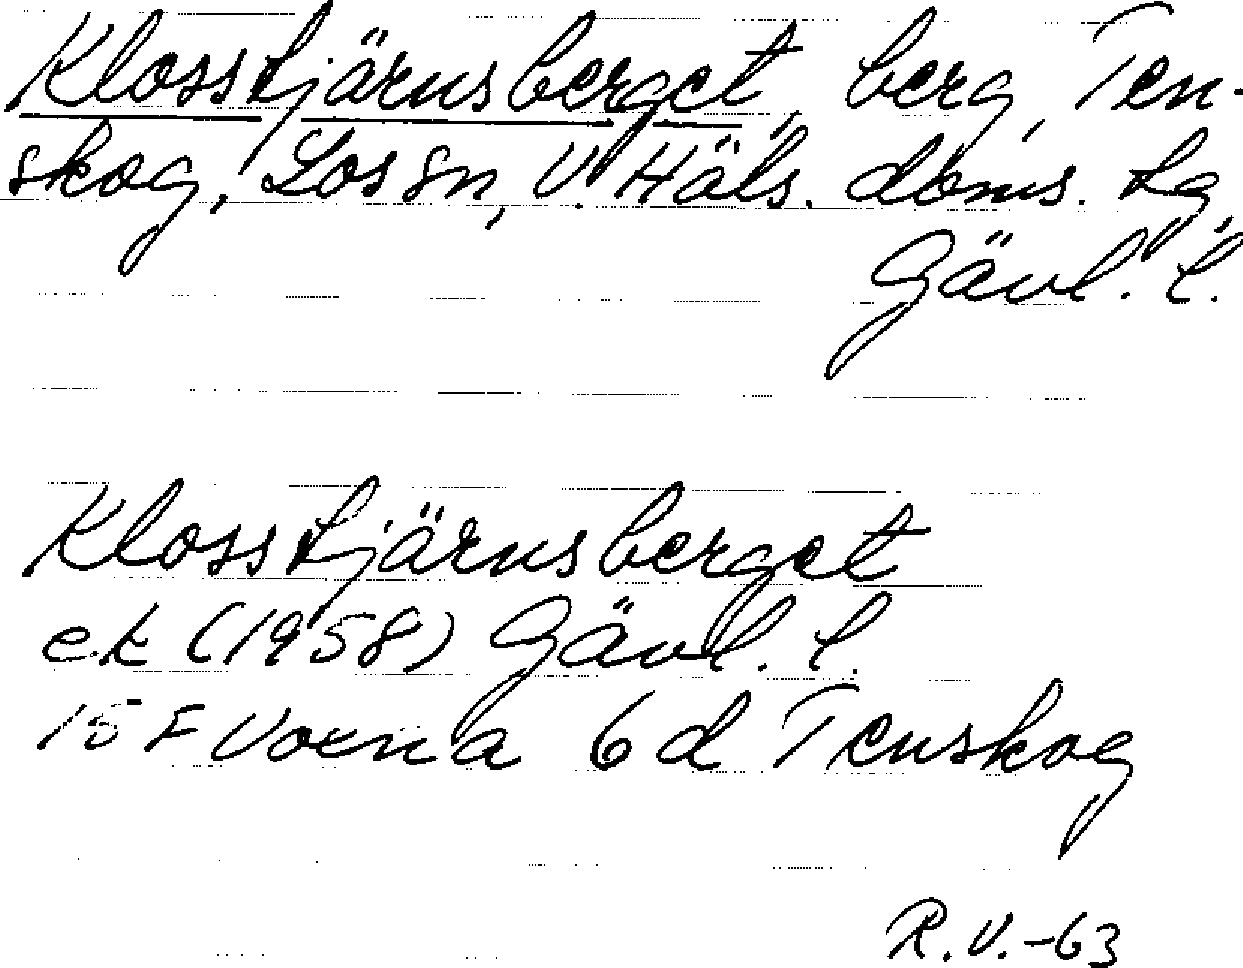 Klosstjärnsberget, berg, Ten-
skog, Los sn, V. Häls. doms. tg,
Gävl. l.
Klosstjärnsberget
ek (1958) Gävl. l.
15 F Voxna 6 d Tenskog
R.V.-63